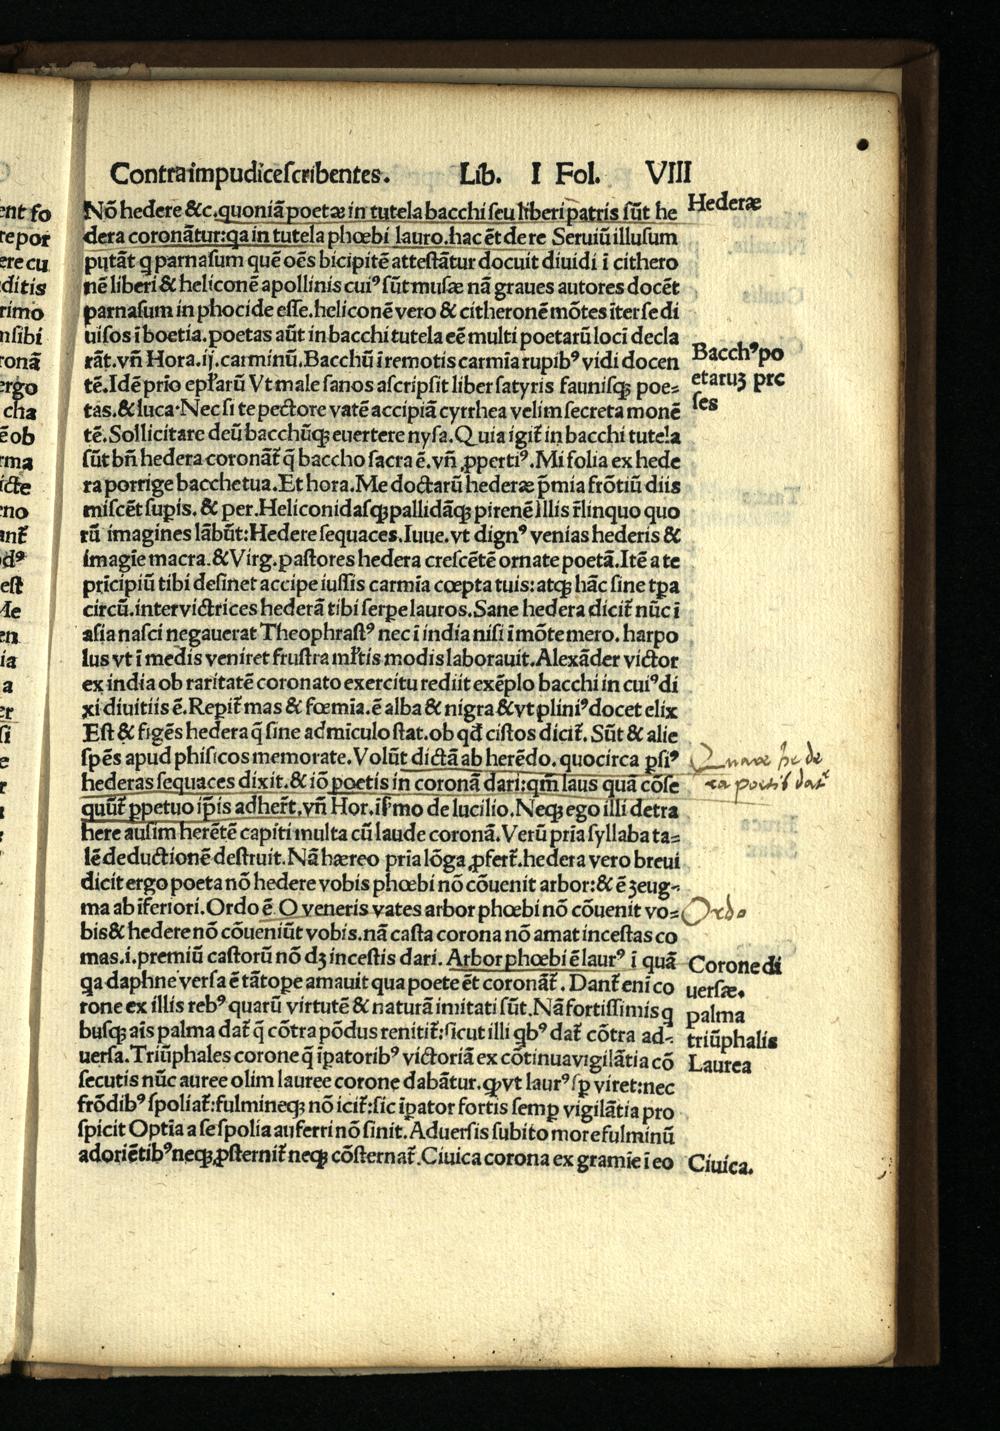 Contra impudice scribentes. Lib. I Fol. VIII
Nõ hedere &c. quoniã poetæ in tutela bacchi seu liberi patris sũt he
dera coronãtur: qa in tutela phœbi lauro. hac ẽt de re Seruiũ illusum
putãt q parnasum quẽ oẽs bicipitẽ attestãtur docuit diuidi ĩ cithero
nẽ liberi & heliconẽ apollinis cuiꝰ sũt musæ nã graues autores docẽt
parnasum in phocide esse. heliconẽ vero & citheronẽ mõtes ĩter se di
uisos ĩ boetia. poetas aũt in bacchi tutela eẽ multi poetarũ loci decla
rãt. vñ Hora. ij. carminũ. Bacchũ ĩ remotis carmĩa rupibꝰ vidi docen
tẽ. Idẽ prĩo epľarũ Vt male sanos ascripsit liber satyris faunisqꝫ poe=
tas. & luca. Nec si te pectore vatẽ accipiã cyrrhea velim secreta monẽ
tẽ. Sollicitare deũ bacchũqꝫ euertere nysa. Quia igiť in bacchi tutela
sũt bñ hedera coronãť q̃ baccho sacra ẽ. vñ ꝓpertiꝰ. Mi folia ex hede
ra porrige bacche tua. Et hora. Me doctarũ hederæ p̃mia frõtiũ diis
miscẽt supis. & per. Heliconidasqꝫ pallidãqꝫ pirenẽ illis řlinquo quo
rũ imagines lãbũt: Hedere sequaces. Iuue. vt dignꝰ venias hederis &
imagĩe macra. & Virg. pastores hedera crescẽtẽ ornate poetã. Itẽ a te
prĩcipiũ tibi desinet accipe iussis carmĩa cœpta tuis: atqꝫ hãc sine tꝑa
circũ. inter victrices hederã tibi serpe lauros. Sane hedera diciť nũc ĩ
asia nasci negauerat Theophrastꝰ nec ĩ india nisi ĩ mõte mero. harpo
lus vt ĩ medis veniret frustra mľtis modis laborauit. Alexãder victor
ex india ob raritatẽ coronato exercitu rediit exẽplo bacchi in cuiꝰ di
xi diuitiis ẽ. Repiť mas & fœmĩa. ẽ alba & nigra & vt pliniꝰ docet elix
Est & figẽs hedera q̃ sine admĩculo stat. ob qđ cistos diciť. Sũt & alie
spẽs apud phisicos memorate. Volũt dictã ab herẽdo. quocirca ꝑsiꝰ
hederas sequaces dixit. & iõ poetis in coronã dari: qm̃ laus quã cõse
quũť ꝑpetuo ip̃is adheřt, vñ Hor. ĩ sřmo de lucilio. Neqꝫ ego illi detra
here ausim herẽtẽ capiti multa cũ laude coronã. Verũ prĩa syllaba ta=
lẽ deductionẽ destruit. Nã hæreo prĩa lõga ꝓferť. hedera vero breui
dicit ergo poeta nõ hedere vobis phœbi nõ cõuenit arbor: & ẽ ʒeug=
ma ab ĩferiori. Ordo ẽ. O veneris vates arbor phœbi nõ cõuenit vo=
bis & hedere nõ cõueniũt vobis. nã casta corona nõ amat incestas co
mas. i. premiũ castorũ nõ dʒ incestis dari. Arbor phœbi ẽ laurꝰ ĩ quã
qa daphne versa ẽ tãtoꝑe amauit qua poete ẽt coronãť. Danť eni co
rone ex illis rebꝰ quarũ virtutẽ & naturã imitati sũt. Nã fortissimis q
busqꝫ aĩs palma dať q̃ cõtra põdus renitiť: sicut illi qbꝰ dať cõtra ad=
uersa. Triũphales corone q̃ ĩꝑatoribꝰ victoriã ex cõtinua vigilãtia cõ
secutis nũc auree olim lauree corone dabãtur. qꝫ vt laurꝰ sp̃ viret: nec
frõdibꝰ spoliať: fulmineqꝫ nõ iciť: sic ĩꝑator fortis semꝑ vigilãtia pro
spicit Optĩa a se spolia auferri nõ sinit. Aduersis subito more fulminũ
adoriẽtibꝰ neqꝫ ꝓsterniť neqꝫ cõsternať. Ciuica corona ex gramĩe ĩ eo
Hederæ
Bacchꝰ po
etaruʒ pre
ses
Quare he de
ra poetis dať
Ordo
Corone di
uersæ.
palma
triũphalis
Laurea
Ciuica.